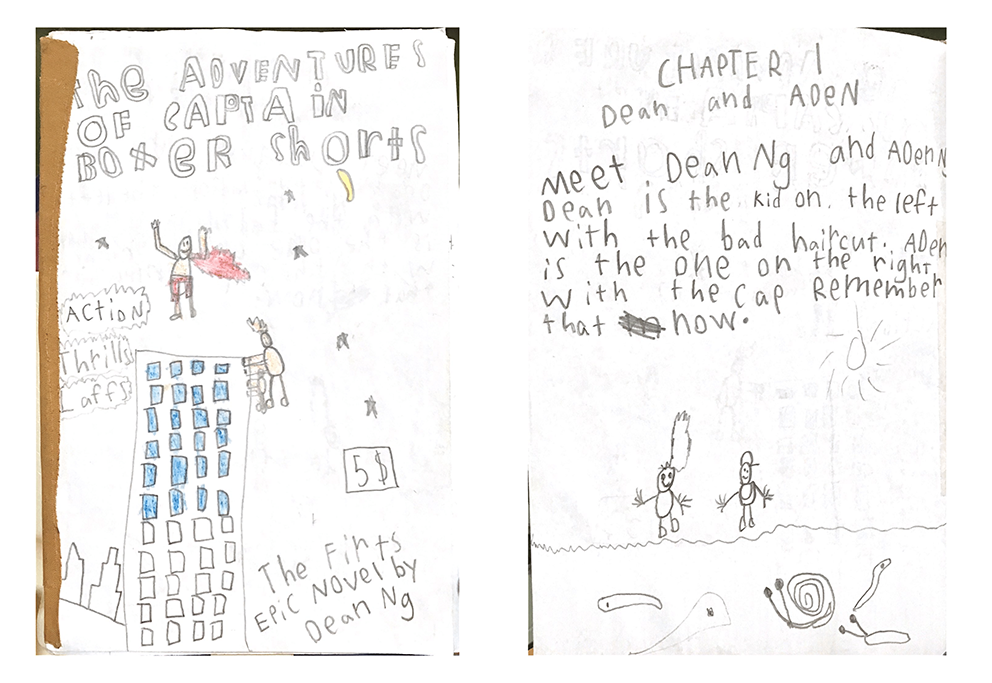 the ADVENTURES
OF CAPTAIN
BOxER shorts
ACtioN
Thrills
Laffs
5$
The Firts
EpiC Novel by
Dean Ng
CHAPTER 1
Dean and ADEN
meet Dean Ng and ADen N
Dean is the kid on. the left
with the bad haircut. ADen
is the one on the right
with the cap Remember
that now.